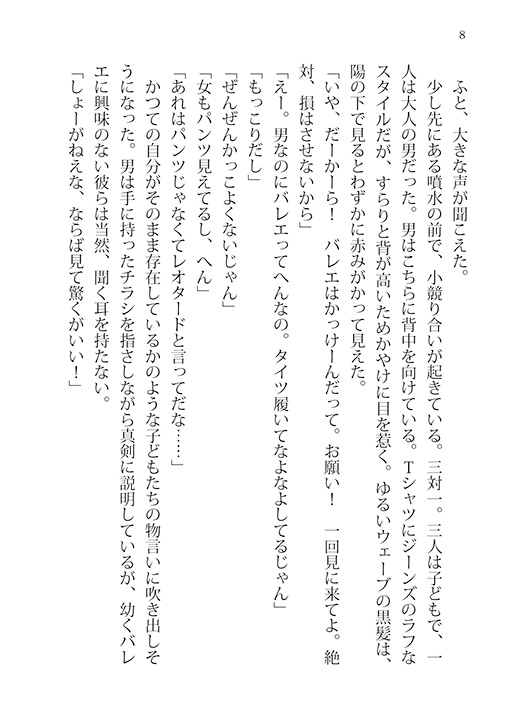 8
　ふと、大きな声が聞こえた。
　少し先にある噴水の前で、小競り合いが起きている。三対一。三人は子どもで、一
人は大人の男だった。男はこちらに背中を向けている。Tシャツにジーンズのラフな
スタイルだが、すらりと背が高いためかやけに目を惹く。ゆるいウェーブの黒髪は、
陽の下で見るとわずかに赤みがかって見えた。
「いや、だーかーら！　バレエはかっけーんだって。お願い！　一回見に来てよ。絶
対、損はさせないから」
「えー。男なのにバレエってへんなの。タイツ履いてなよなよしてるじゃん」
「もっこりだし」
「ぜんぜんかっこよくないじゃん」
「女もパンツ見えてるし、へん」
「あれはパンツじゃなくてレオタードと言ってだな……」
　かつての自分がそのまま存在しているかのような子どもたちの物言いに吹き出しそ
うになった。男は手に持ったチラシを指さしながら真剣に説明しているが、幼くバレ
エに興味のない彼らは当然、聞く耳を持たない。
「しょーがねえな、ならば見て驚くがいい！」